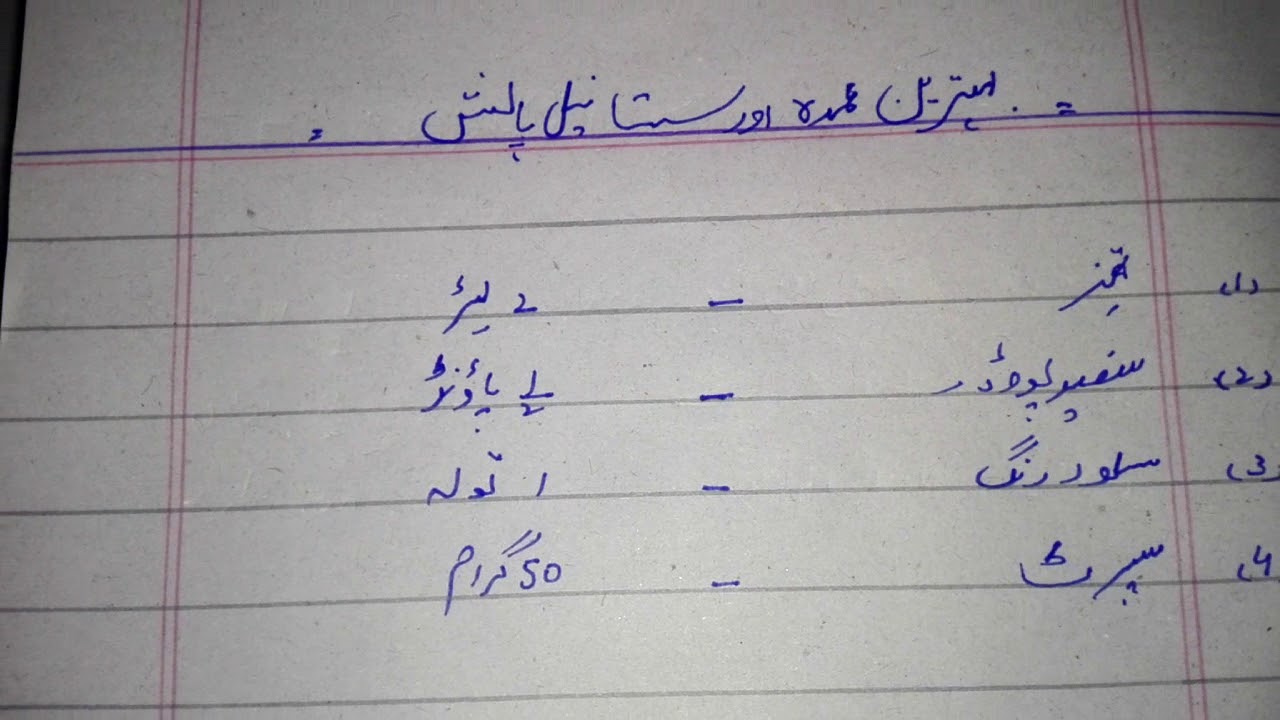 = بہترین عمدہ اور ستا نیل پالش =
(1) تھنر - 2 لیٹر
(2) سفید پوڈر - پاؤنڈ
(3) سلور رنگ - 1 تولہ
(4) سپرٹ - 50 گرام